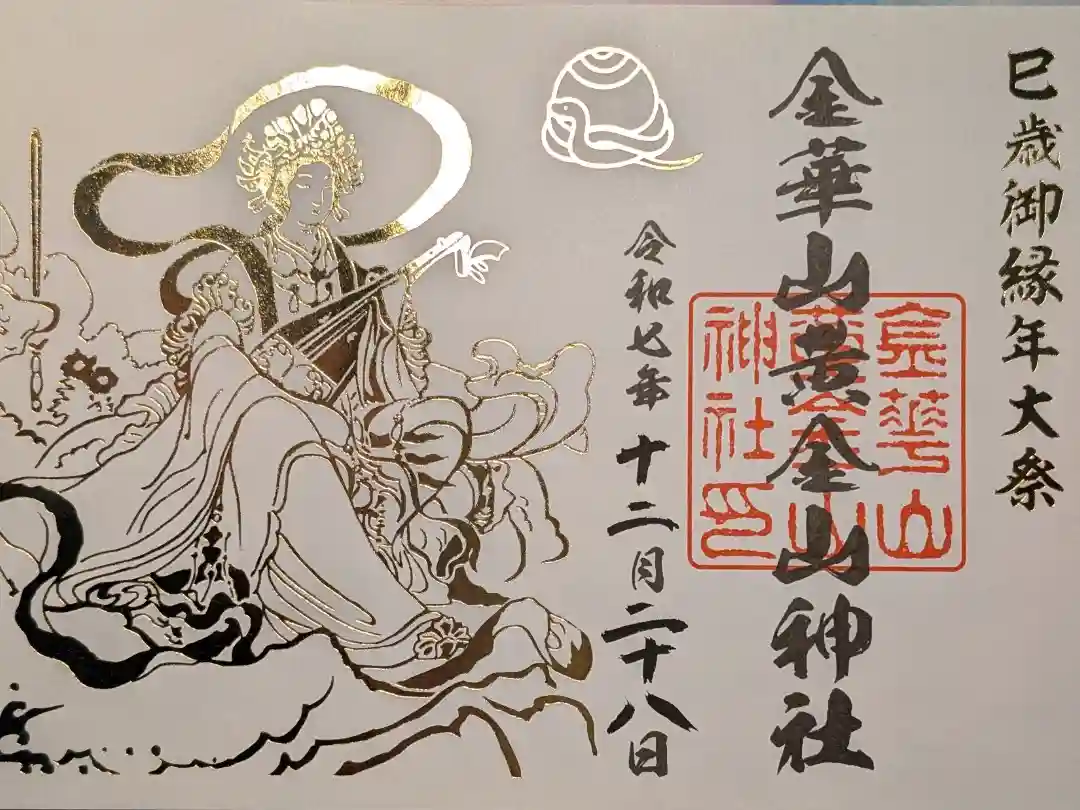 巳歳御縁年大祭
金華山黄金山神社
金華山黄金山神社印
令和七年十二月二十八日